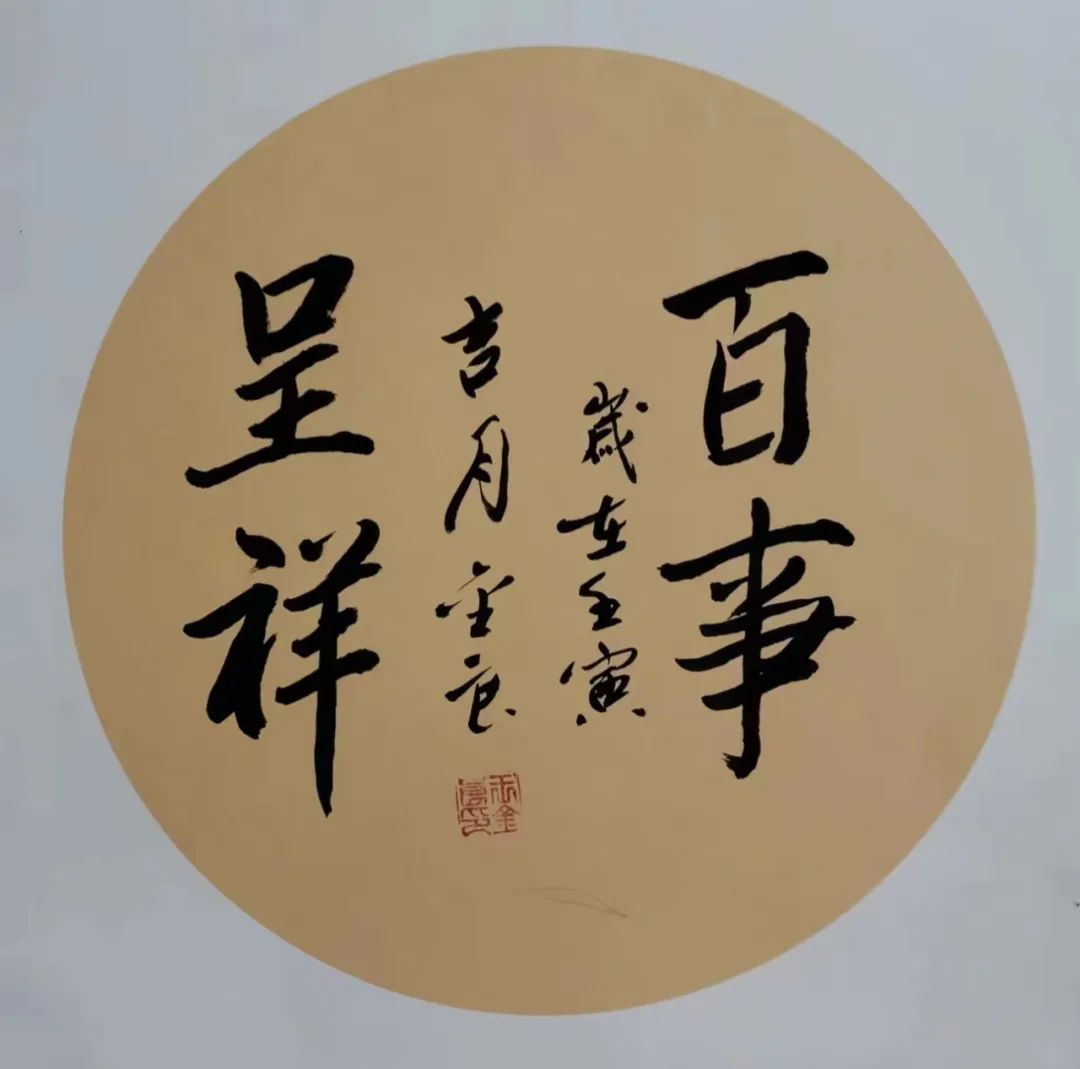 百事
歲在壬寅
吉月金良
呈祥